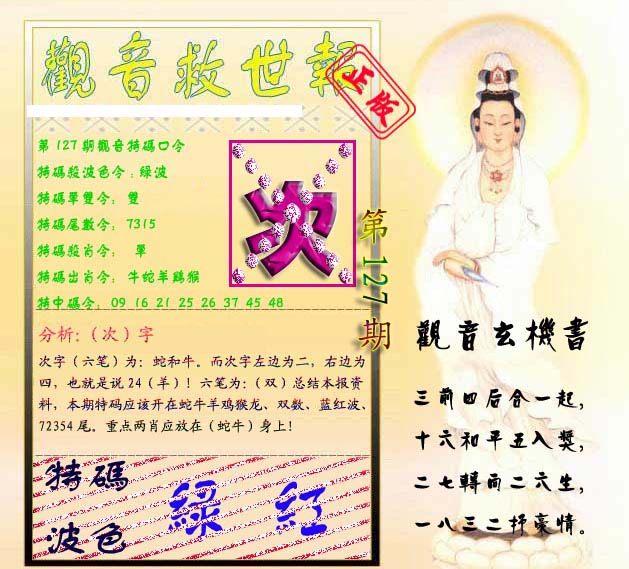 觀音救世報
正版
第127期觀音特碼口令
特碼殺波色令:綠波
特碼單雙令: 雙
特碼尾數令: 7315
特碼殺肖令: 單
特碼出肖令: 牛蛇羊鷄猴
特中碼令: 09 16 21 25 26 37 45 48
次
第127期
分析:(次)字
次字(六笔)为:蛇和牛。而次字左边为二,右边为
四,也就是说24(羊)!六笔为:(双)总结本报资
料,本期特码应该开在蛇牛羊鸡猴龙、双数、蓝红波、
72354尾。重点两肖应放在(蛇牛)身上!
特碼
波色
綠 紅
觀音玄機書
三前四后合一起,
十六和平五入獎,
二七轉而二六生,
一八三二抒豪情。